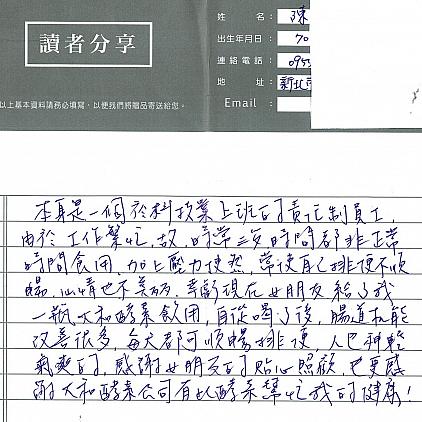 讀者分享
姓 名：陳
出生年月日：70
連絡電話：095
地 址：新北市
Email：
以上基本資料請務必填寫，以便我們將贈品寄送給您。
本身是一個於科技業上班的責任制員工，
由於工作繁忙，故，時常三歺時間都非正常
時間食用，加上壓力使然，常使自己排便不順
暢，心情也不美麗，幸虧現在女朋友給了我
一瓶大和酵素飲用，自從喝了後，腸道機能
改善很多，每天都可順暢排便，人也神輕
氣爽的，感謝女朋友的貼心照顧，也更感
謝大和酵素公司有以酵素幫忙我的健康！